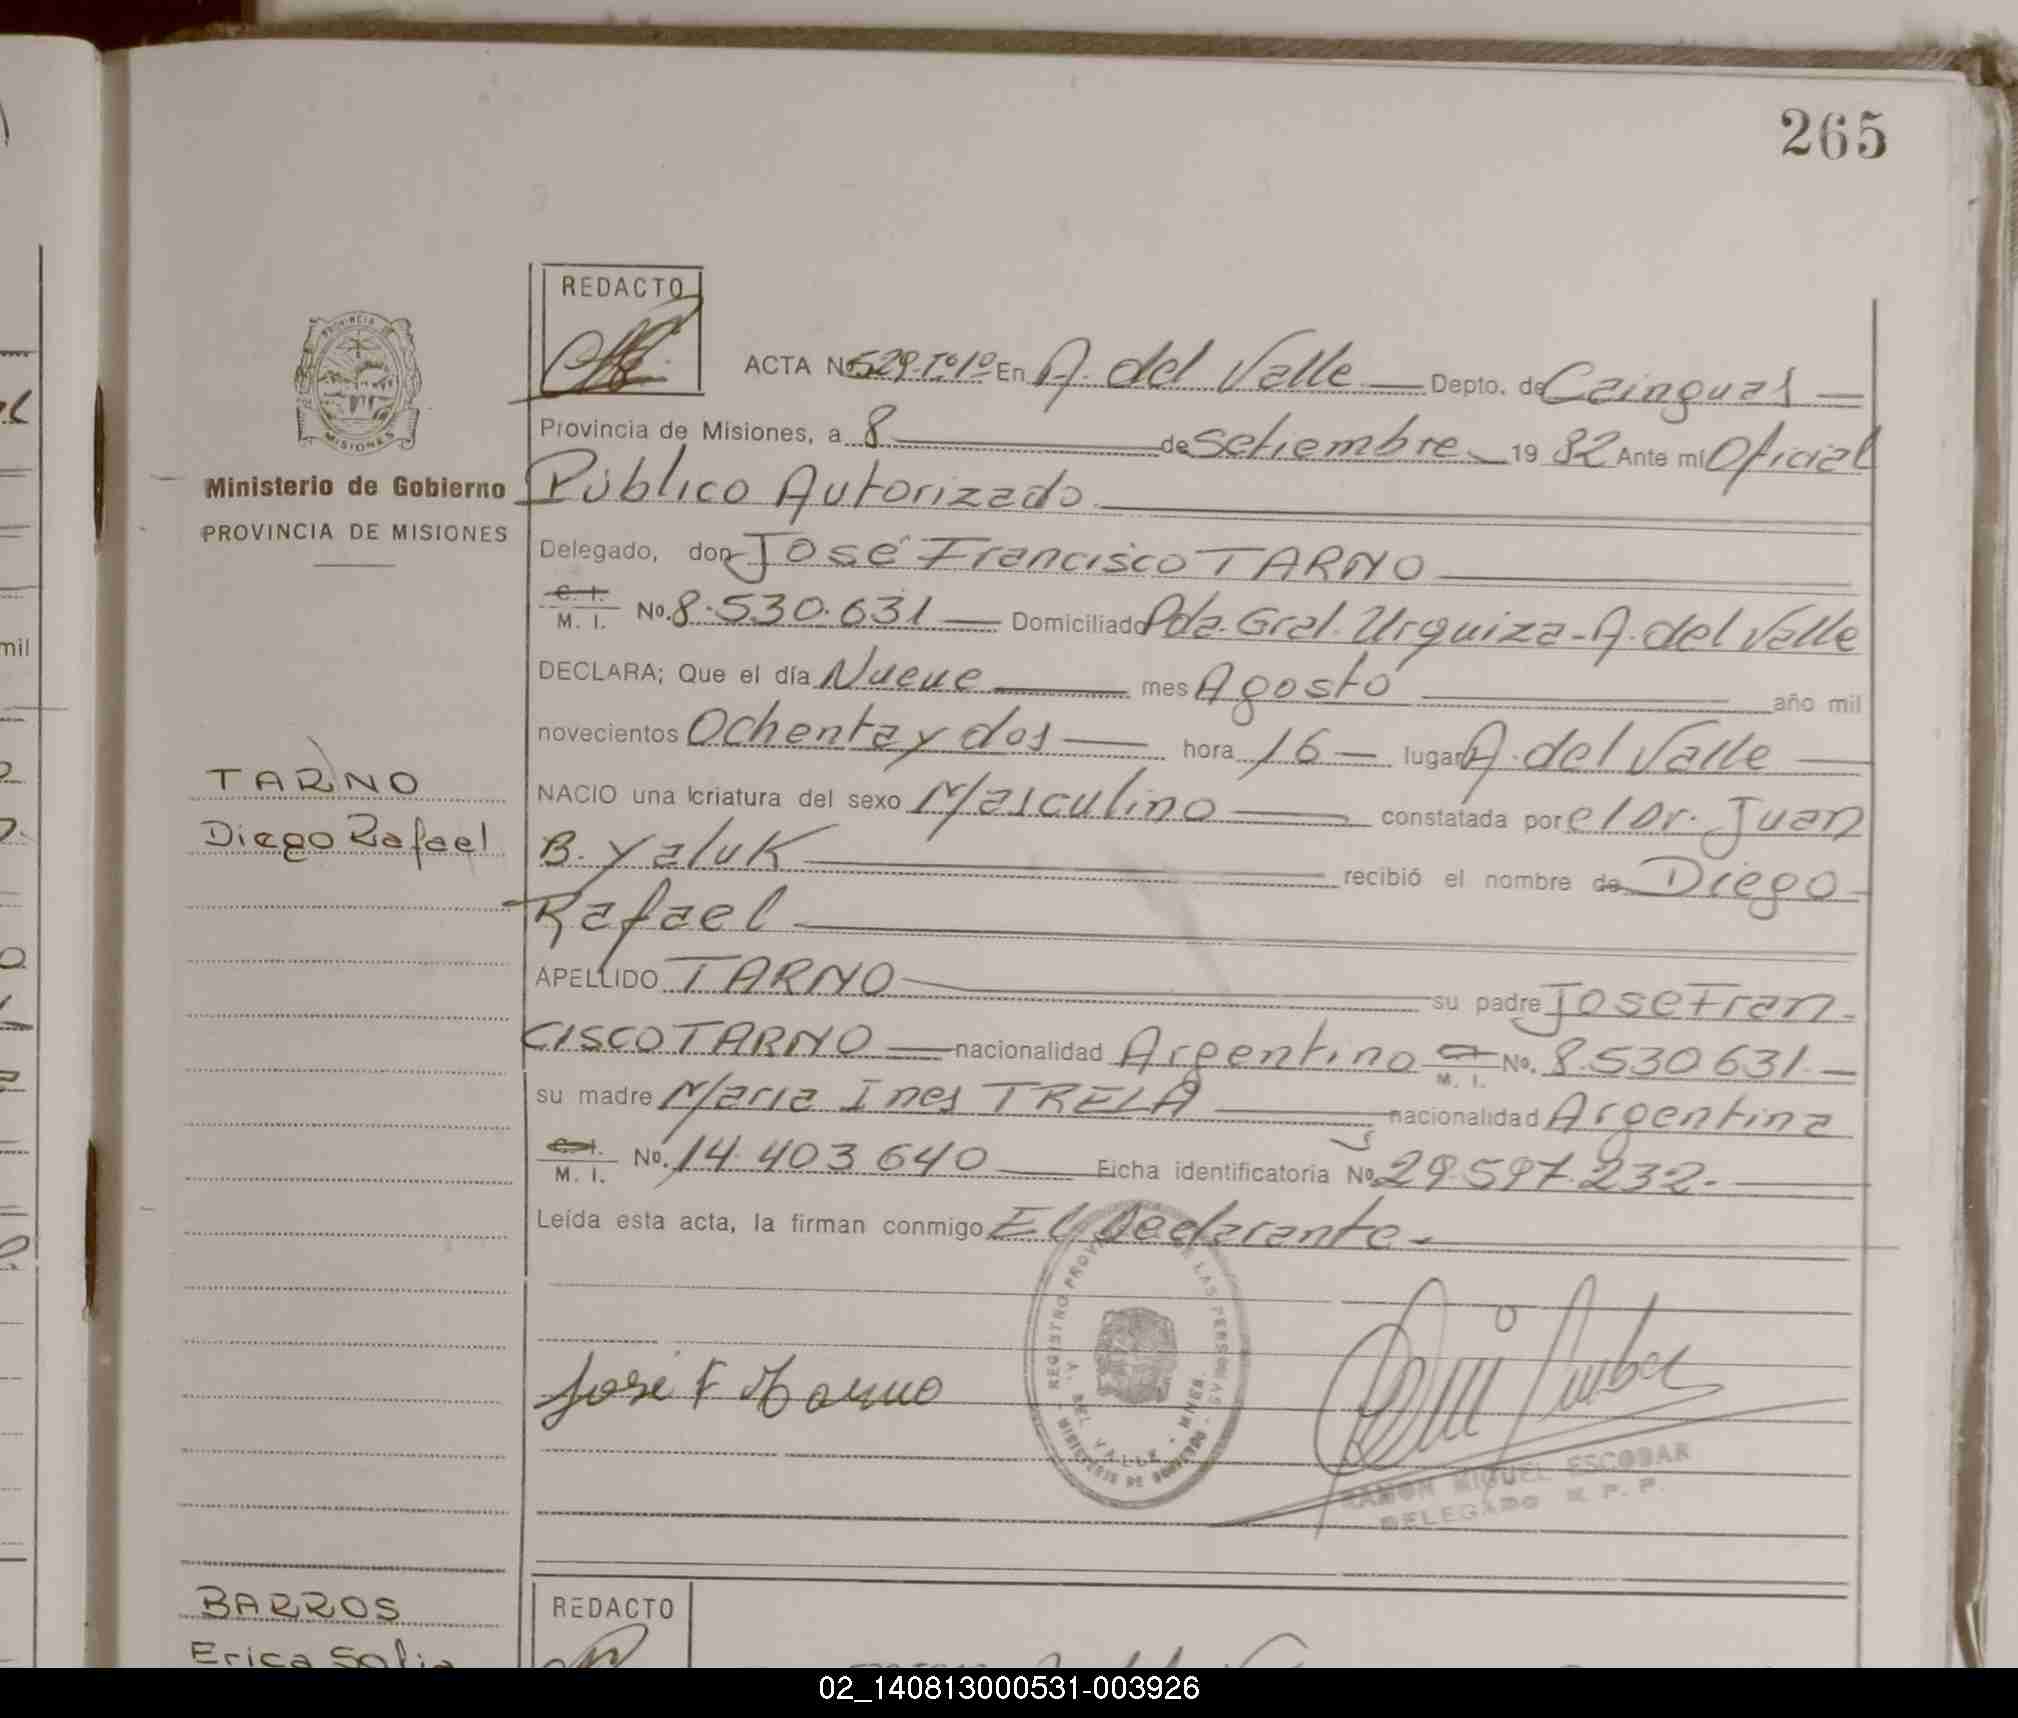 265
REDACTO
PROVINCIA DE
MISIONES
Ministerio de Gobierno
PROVINCIA DE MISIONES
ACTA No 529-Tº1º En A. del Valle Depto. de Cainguas
Provincia de Misiones, a 8 de Setiembre 19 82 Ante mí Oficial
Público Autorizado
Delegado, don José Francisco TARNO
C. I. M. I. No. 8.530.631 Domiciliado Pda. Gral. Urquiza - A. del Valle
DECLARA; Que el día Nueve mes Agosto año mil
novecientos Ochenta y dos hora 16 lugar A. del Valle
NACIO una criatura del sexo Masculino constatada por el Dr. Juan
B. Yaluk recibió el nombre de Diego
Rafael
APELLIDO TARNO su padre José Fran-
CISCO TARNO nacionalidad Argentino M. I. No. 8.530 631.
su madre Maria Ines TRELA nacionalidad Argentina
C. I. M. I. No. 14.403 640 Ficha identificatoria No 29.597.232.-
Leída esta acta, la firman conmigo El Declarante.-
TARNO
Diego Rafael
José F Tarno
REGISTRO PROV LAS PERSONAS
MINISTERIO DE GOBIERNO
DEL VALLE - MNES.
RAMON MIGUEL ESCOBAR
DELEGADO R. P. P.
BARROS
Erica Sofia
REDACTO
mil
02_140813000531-003926